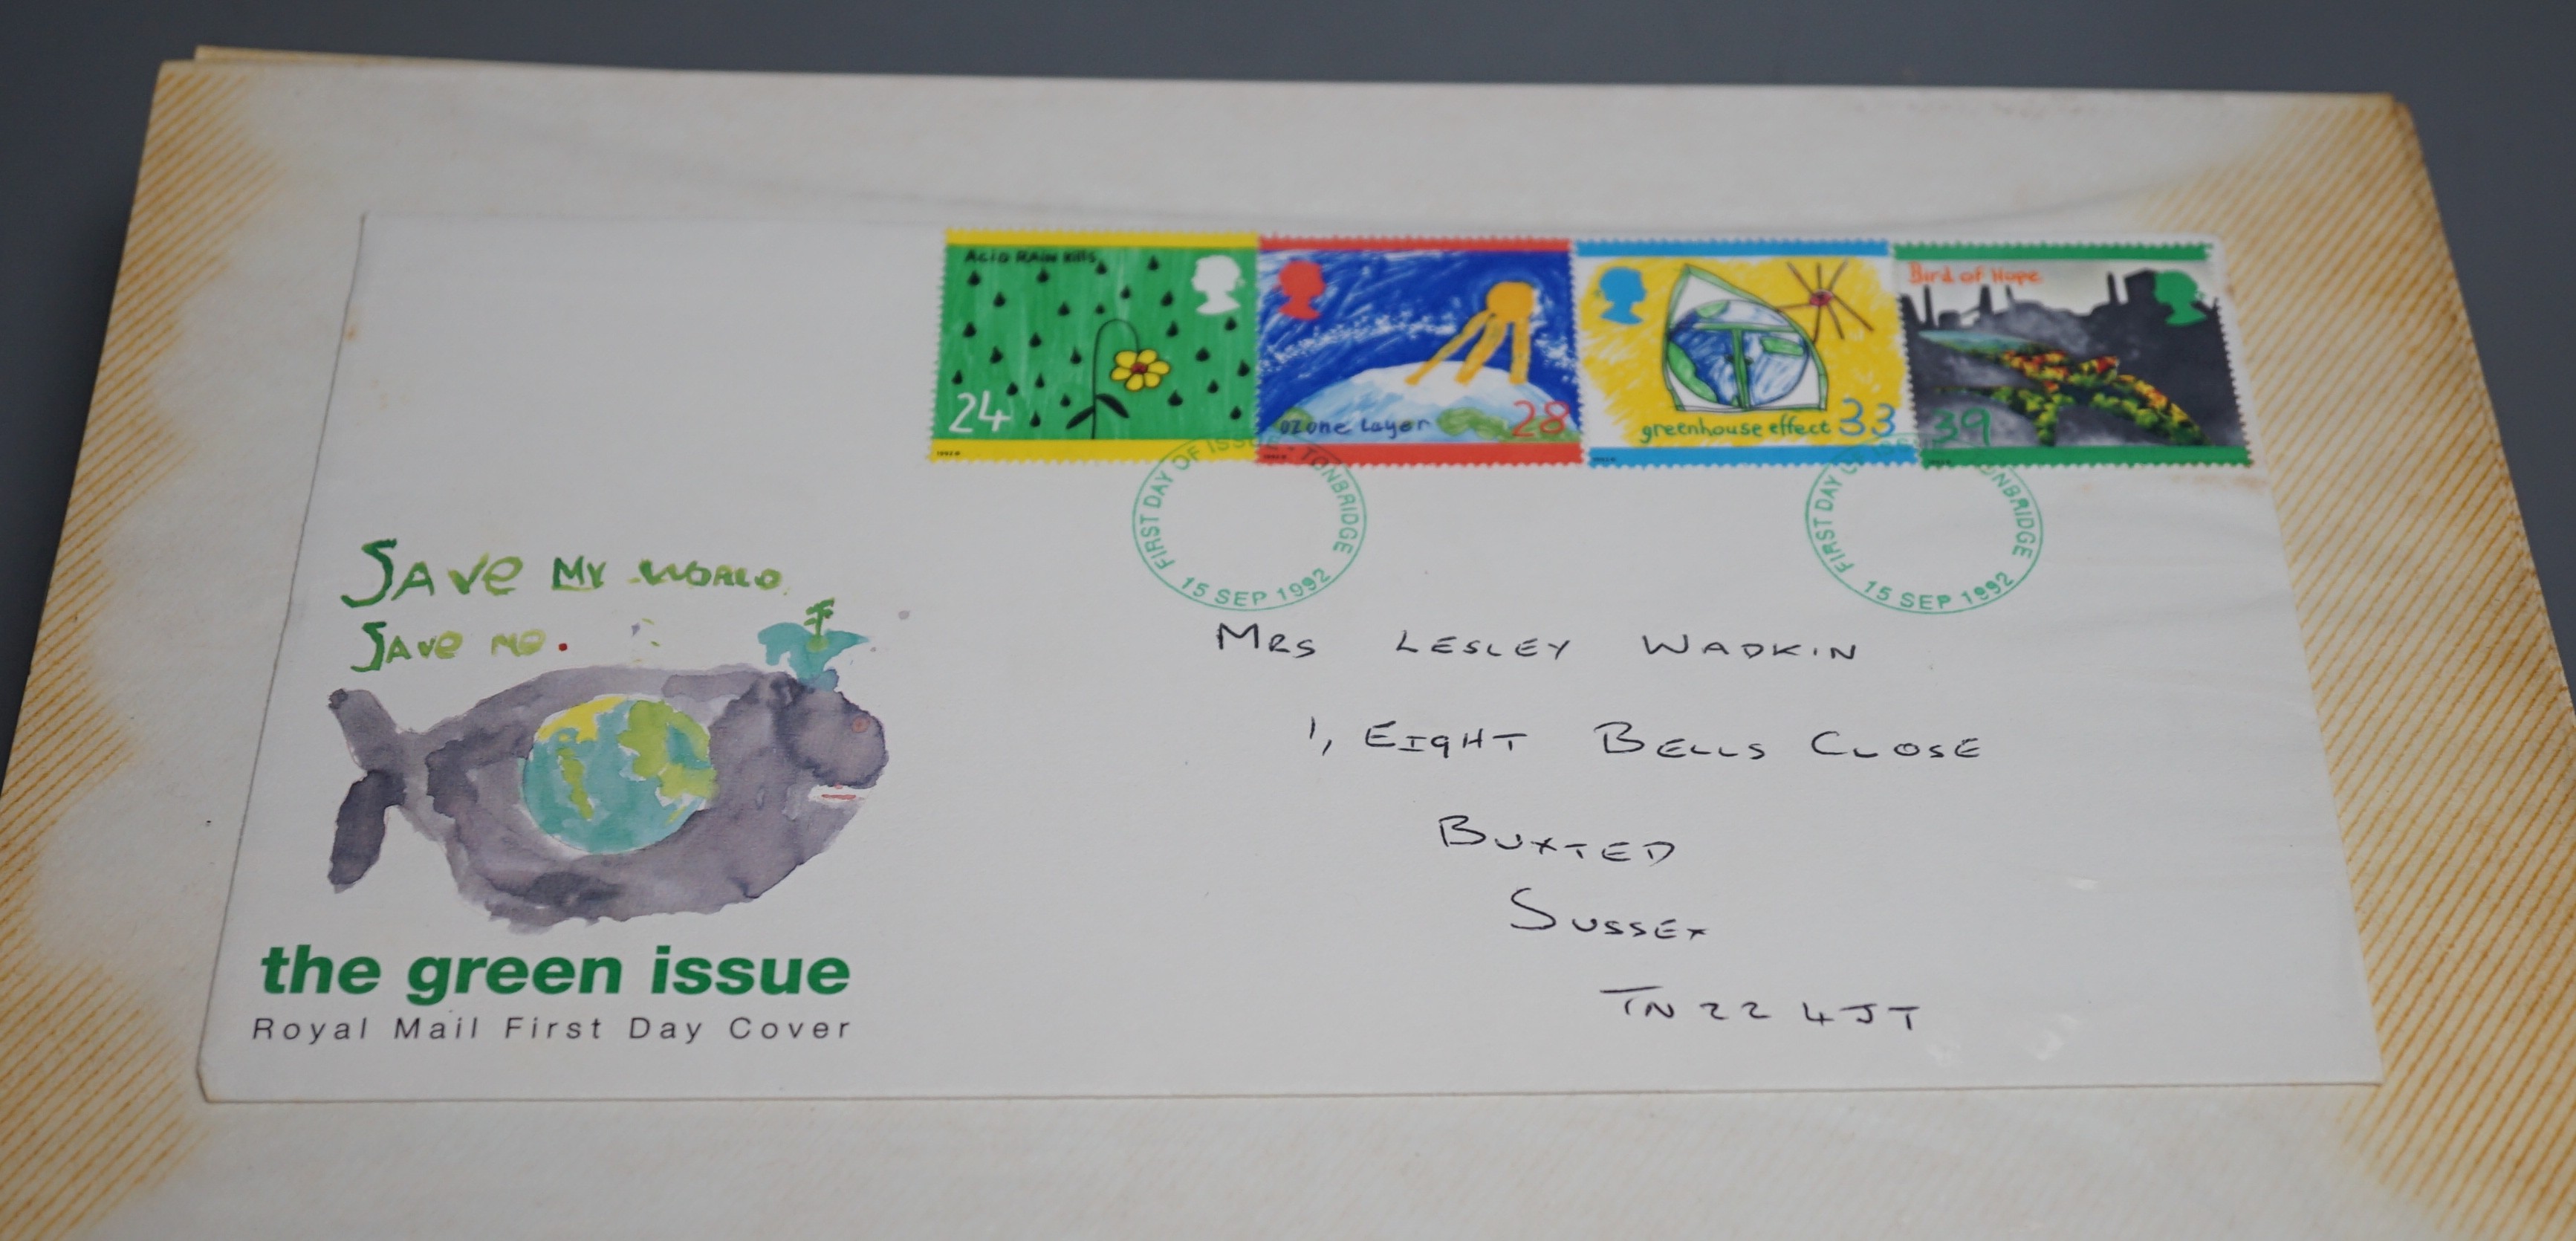 Acid RAiN kills
24
ozone layer 28
greenhouse effect 33
Bird of Hope
39
FIRST DAY OF ISSUE - TONBRIDGE
15 SEP 1992
FIRST DAY OF ISSUE TONBRIDGE
15 SEP 1992
SAVe MY WORLD
SAve Me.
the green issue
Royal Mail First Day Cover
MRS LESLEY WADKIN
1, EIGHT BELLS CLOSE
BUXTED
SUSSEX
TN22 4JT